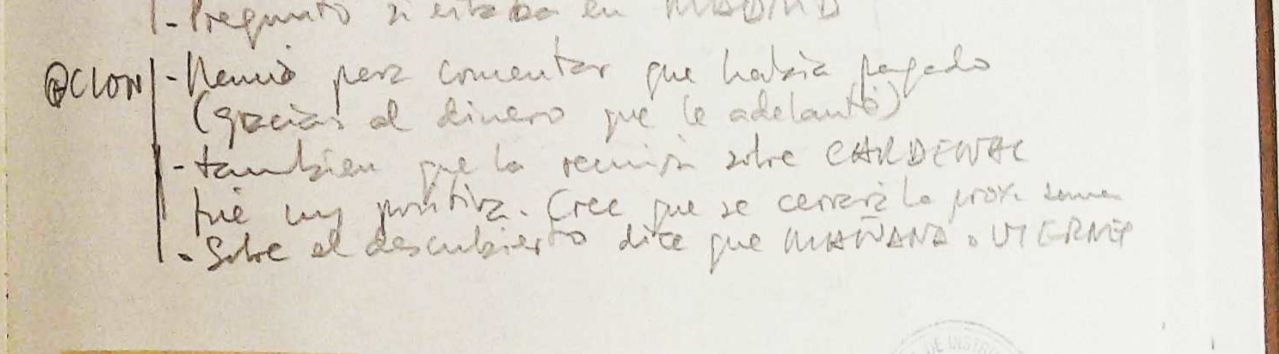 - Pregunto si estaba en MADRID
- para comentar que había pagado
(gracias al dinero que le adelantó)
- también que la reunión sobre CARDENAL
fué muy positiva. Cree que se cerrará la prox.
- Sobre el descubierto dice que MAÑANA o VIERNES
DE INSTR